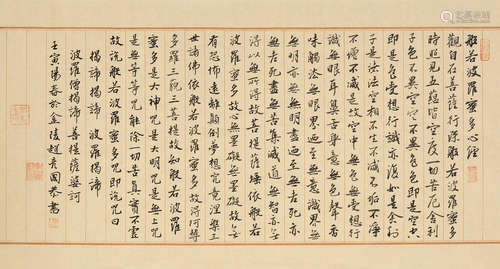 般若波羅蜜多心經
觀自在菩薩行深般若波羅蜜多
時照見五蘊皆空度一切苦厄舍利
子色不異空空不異色色即是空空
即是色受想行識亦復如是舍利
子是法空相不生不滅不垢不淨
不增不減是故空中無色無受想行
識無眼耳鼻舌身意無色聲香
味觸法無眼界迺至無意識界無
無明亦無無明盡迺至無老死亦
無老死盡無苦集滅道無智亦無
得以無所得故菩提薩埵依般若
波羅蜜多故心無罣礙無罣礙故無
有恐怖遠離顛倒夢想究竟涅槃三
世諸佛依般若波羅蜜多故得阿耨
多羅三藐三菩提故知般若波羅
蜜多是大神咒是大明咒是無上咒
是無等等咒能除一切苦真實不虛
故說般若波羅蜜多咒即說咒曰
揭諦揭諦 波羅揭諦
波羅僧揭諦菩提薩婆訶
壬寅陽春於金陵趙彥國恭書